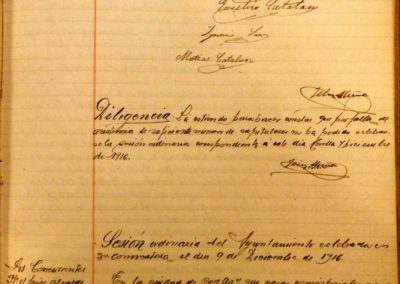 Faustino Catalan
Ignacio
Matias Catalan
Diligencia. La extiendo para hacer constar que por falta de
asistencia de suficiente número de capitulares no ha podido celebrar-
se la sesión ordinaria correspondiente a este día Corella 7 Diciembre
de 1916.
Sesión ordinaria del Ayuntamiento celebrada en
2ª convocatoria, el día 9 de Diciembre de 1916.
Srs Concurrentes
En la ciudad de